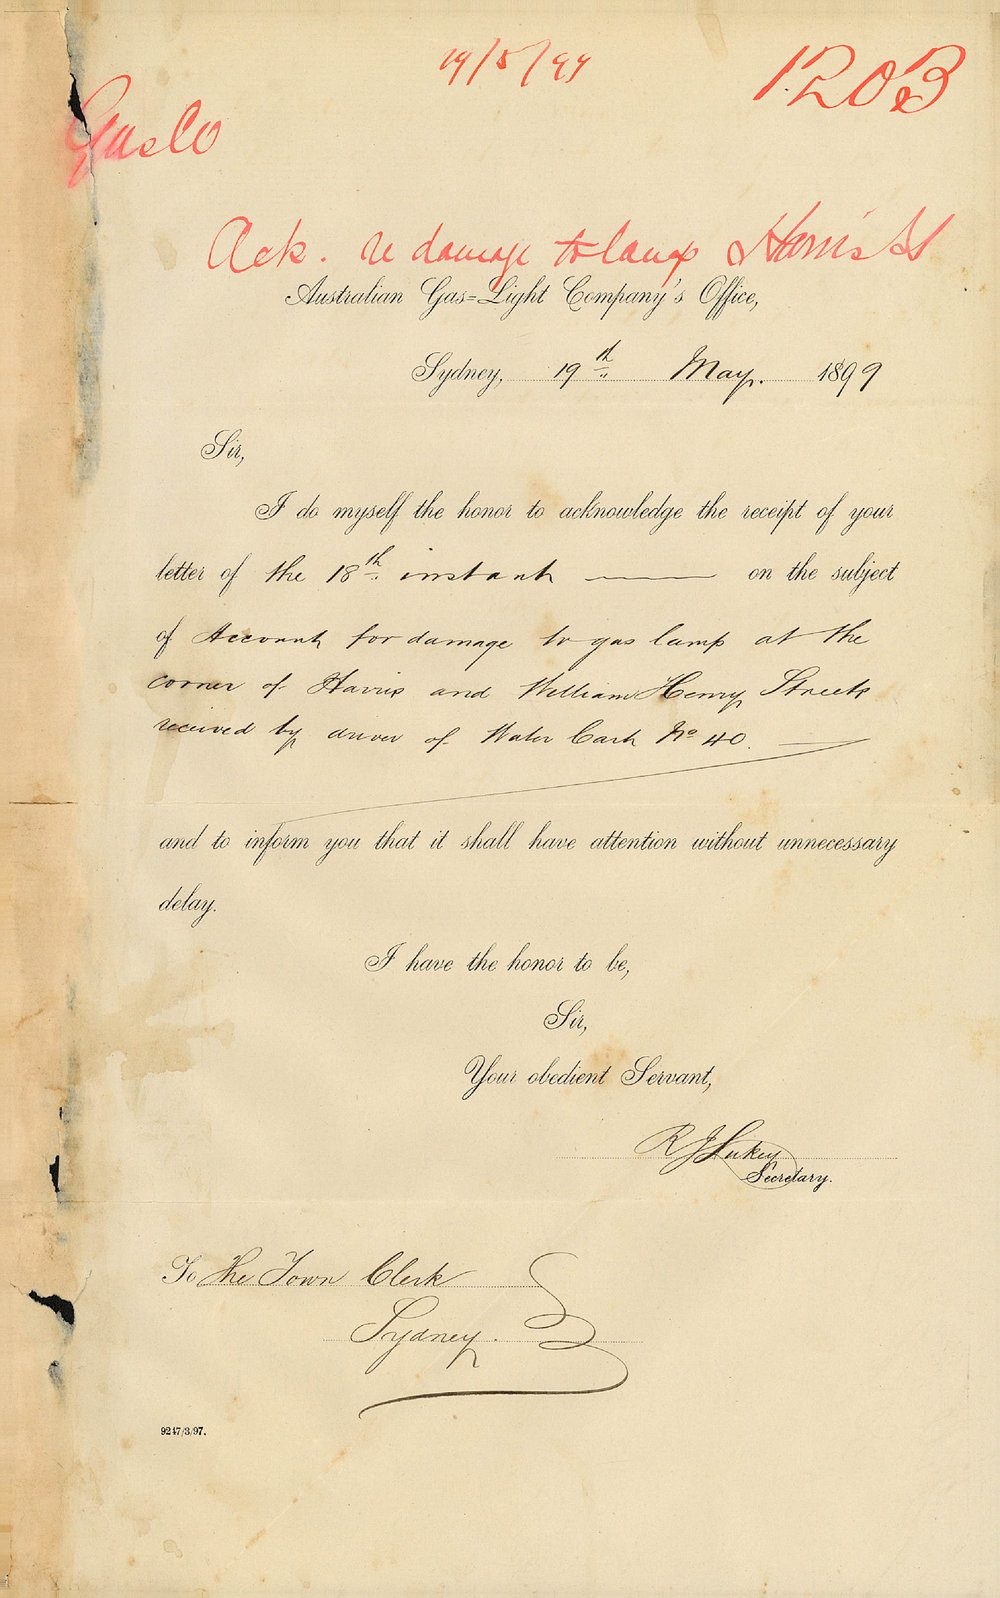 19/5/99
1203
Gas Co
Ack. re damage to lamp Harris St
Australian Gas=Light Company's Office,
Sydney, 19th May. 1899
Sir,
I do myself the honor to acknowledge the receipt of your
letter of the 18th instant on the subject
of Account for damage to gas lamp at the
corner of Harris and William Henry Streets
received by driver of Water Cart No 40.
and to inform you that it shall have attention without unnecessary
delay.
I have the honor to be,
Sir,
Your obedient Servant,
R J Lukey
Secretary.
To The Town Clerk
Sydney.
9247/3/97.